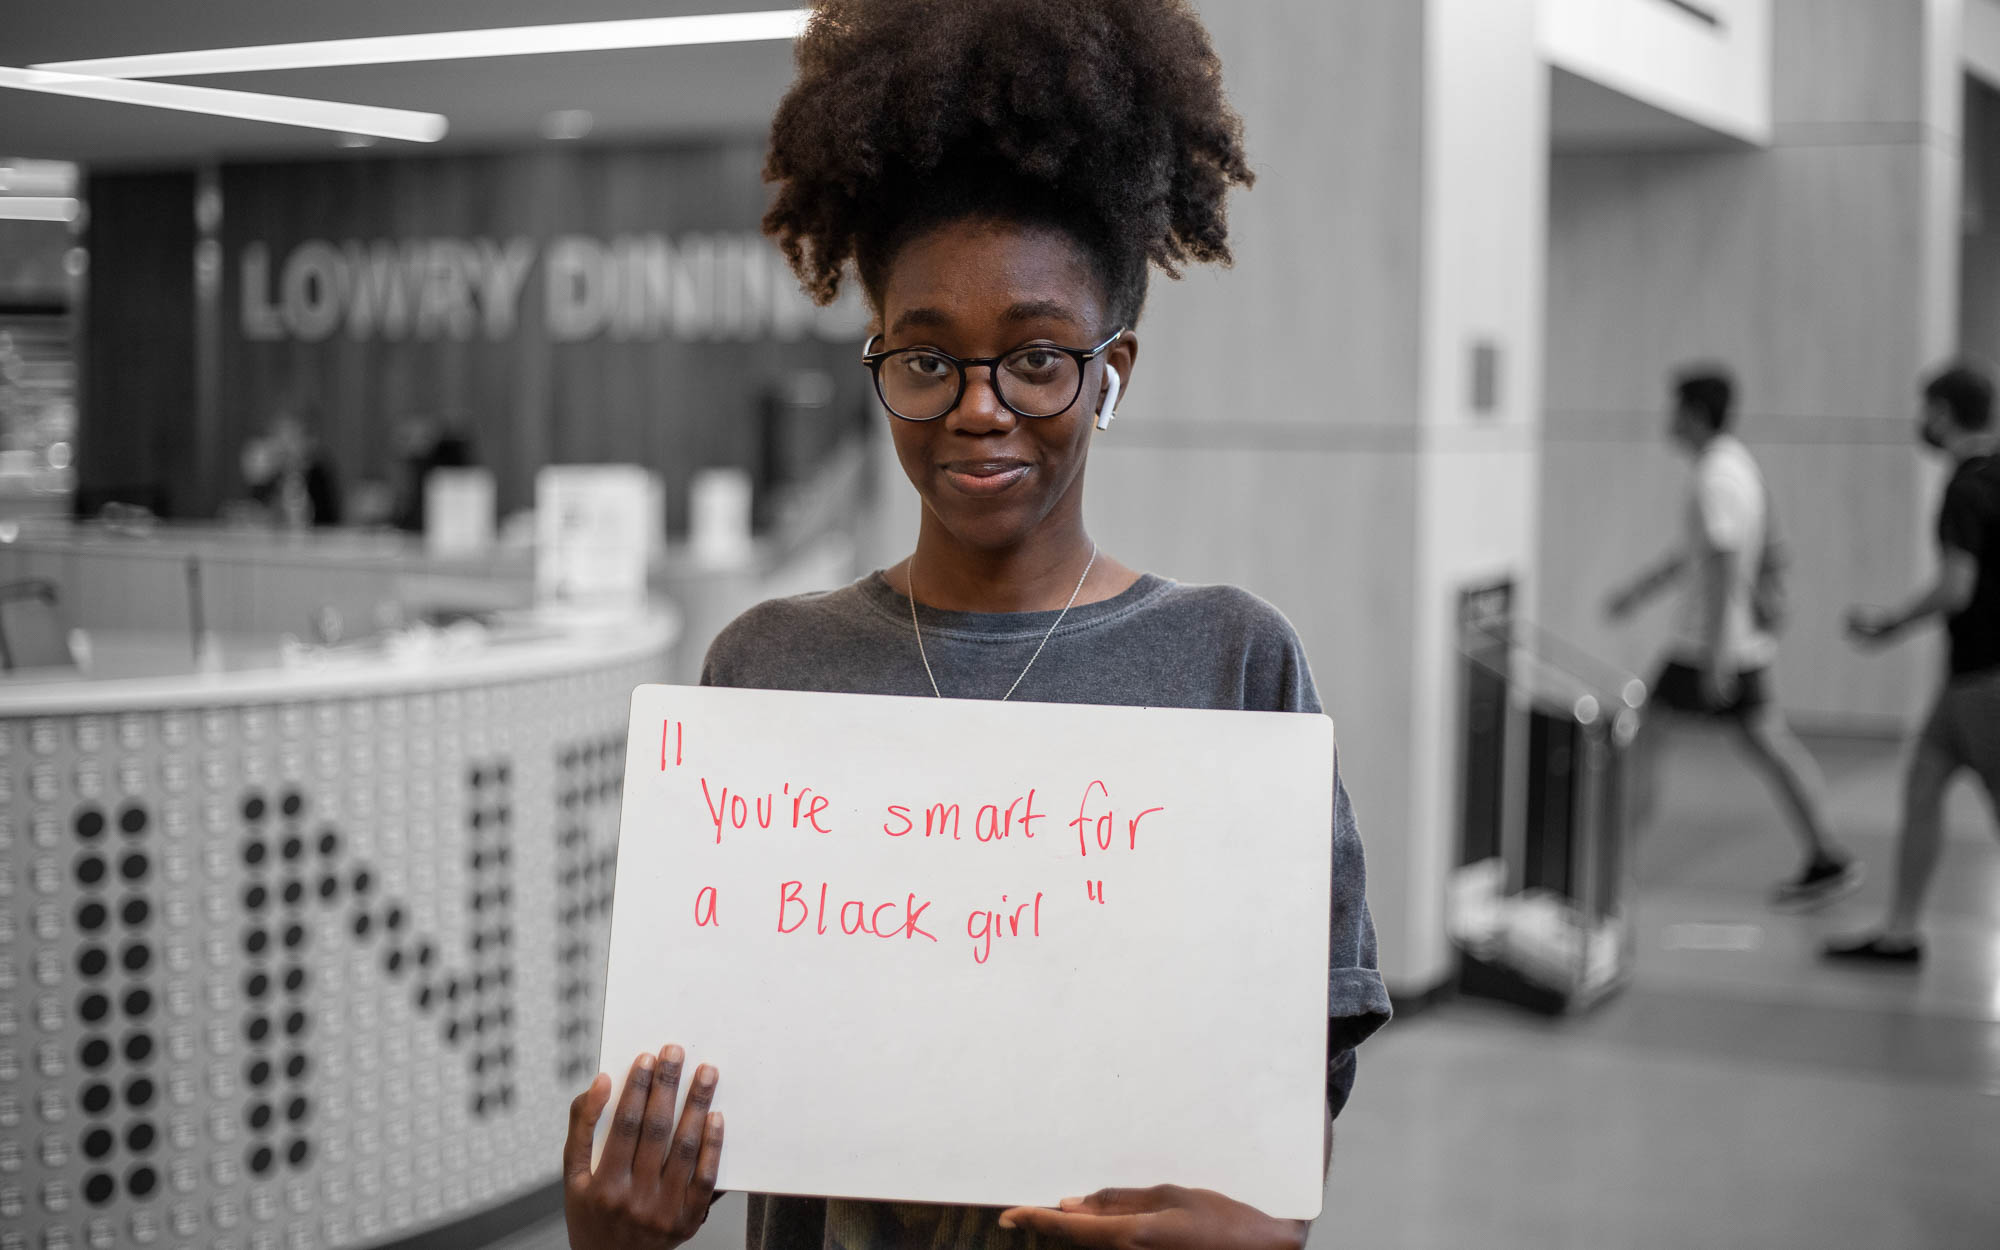 LOWRY DINING
"
You're smart for
a Black girl "
IN